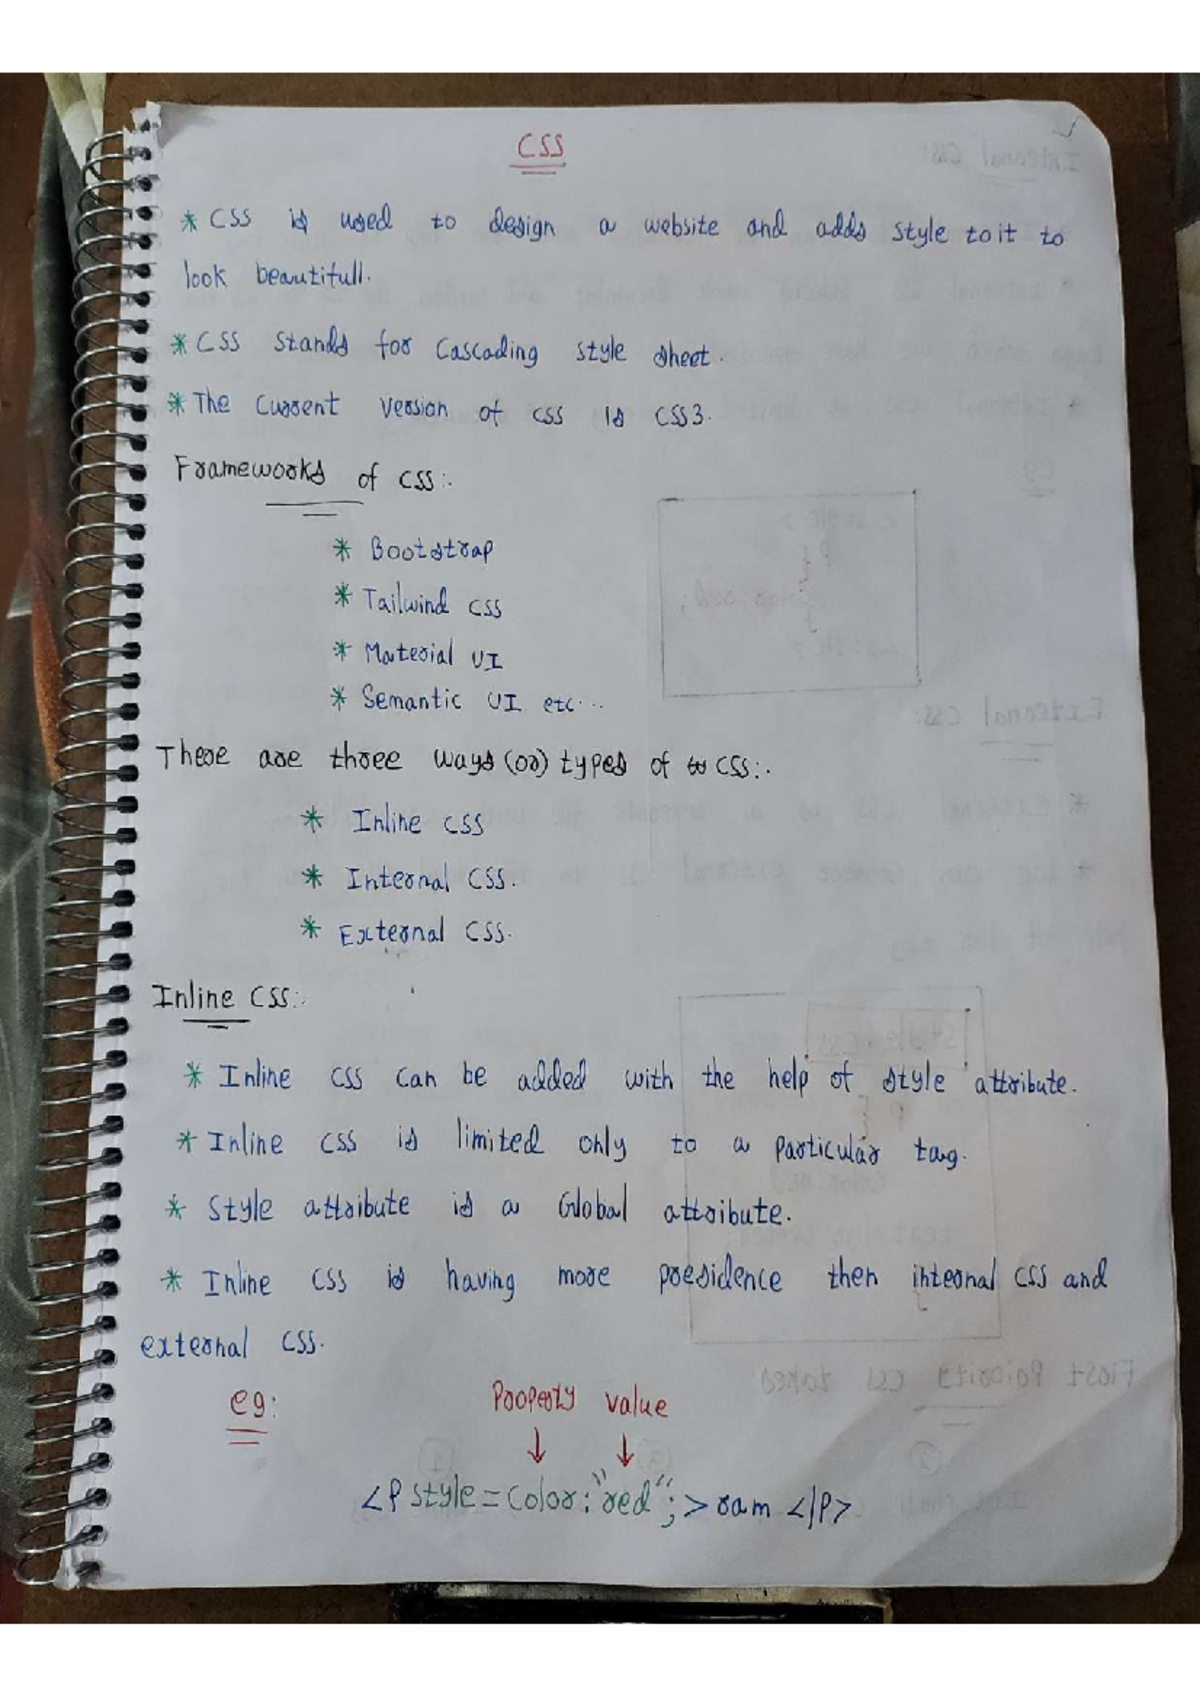 CSS
* CSS is used to design a website and adds style to it to
look beautifull.
* CSS stands for Cascading style sheet.
* The Current version of css is CSS3.
Frameworks of CSS:.
* Bootstrap
* Tailwind CSS
* Material UI
* Semantic UI etc...
There are three ways (or) types of CSS:.
* Inline CSS
* Internal CSS.
* External CSS.
Inline CSS:.
* Inline CSS can be added with the help of style attribute.
* Inline CSS is limited only to a particular tag.
* Style attribute is a Global attribute.
* Inline CSS is having more presidence then internal CSS and
external CSS.
eg:
Property value
↓ ↓
<P style=Color:"red";> ram </P>